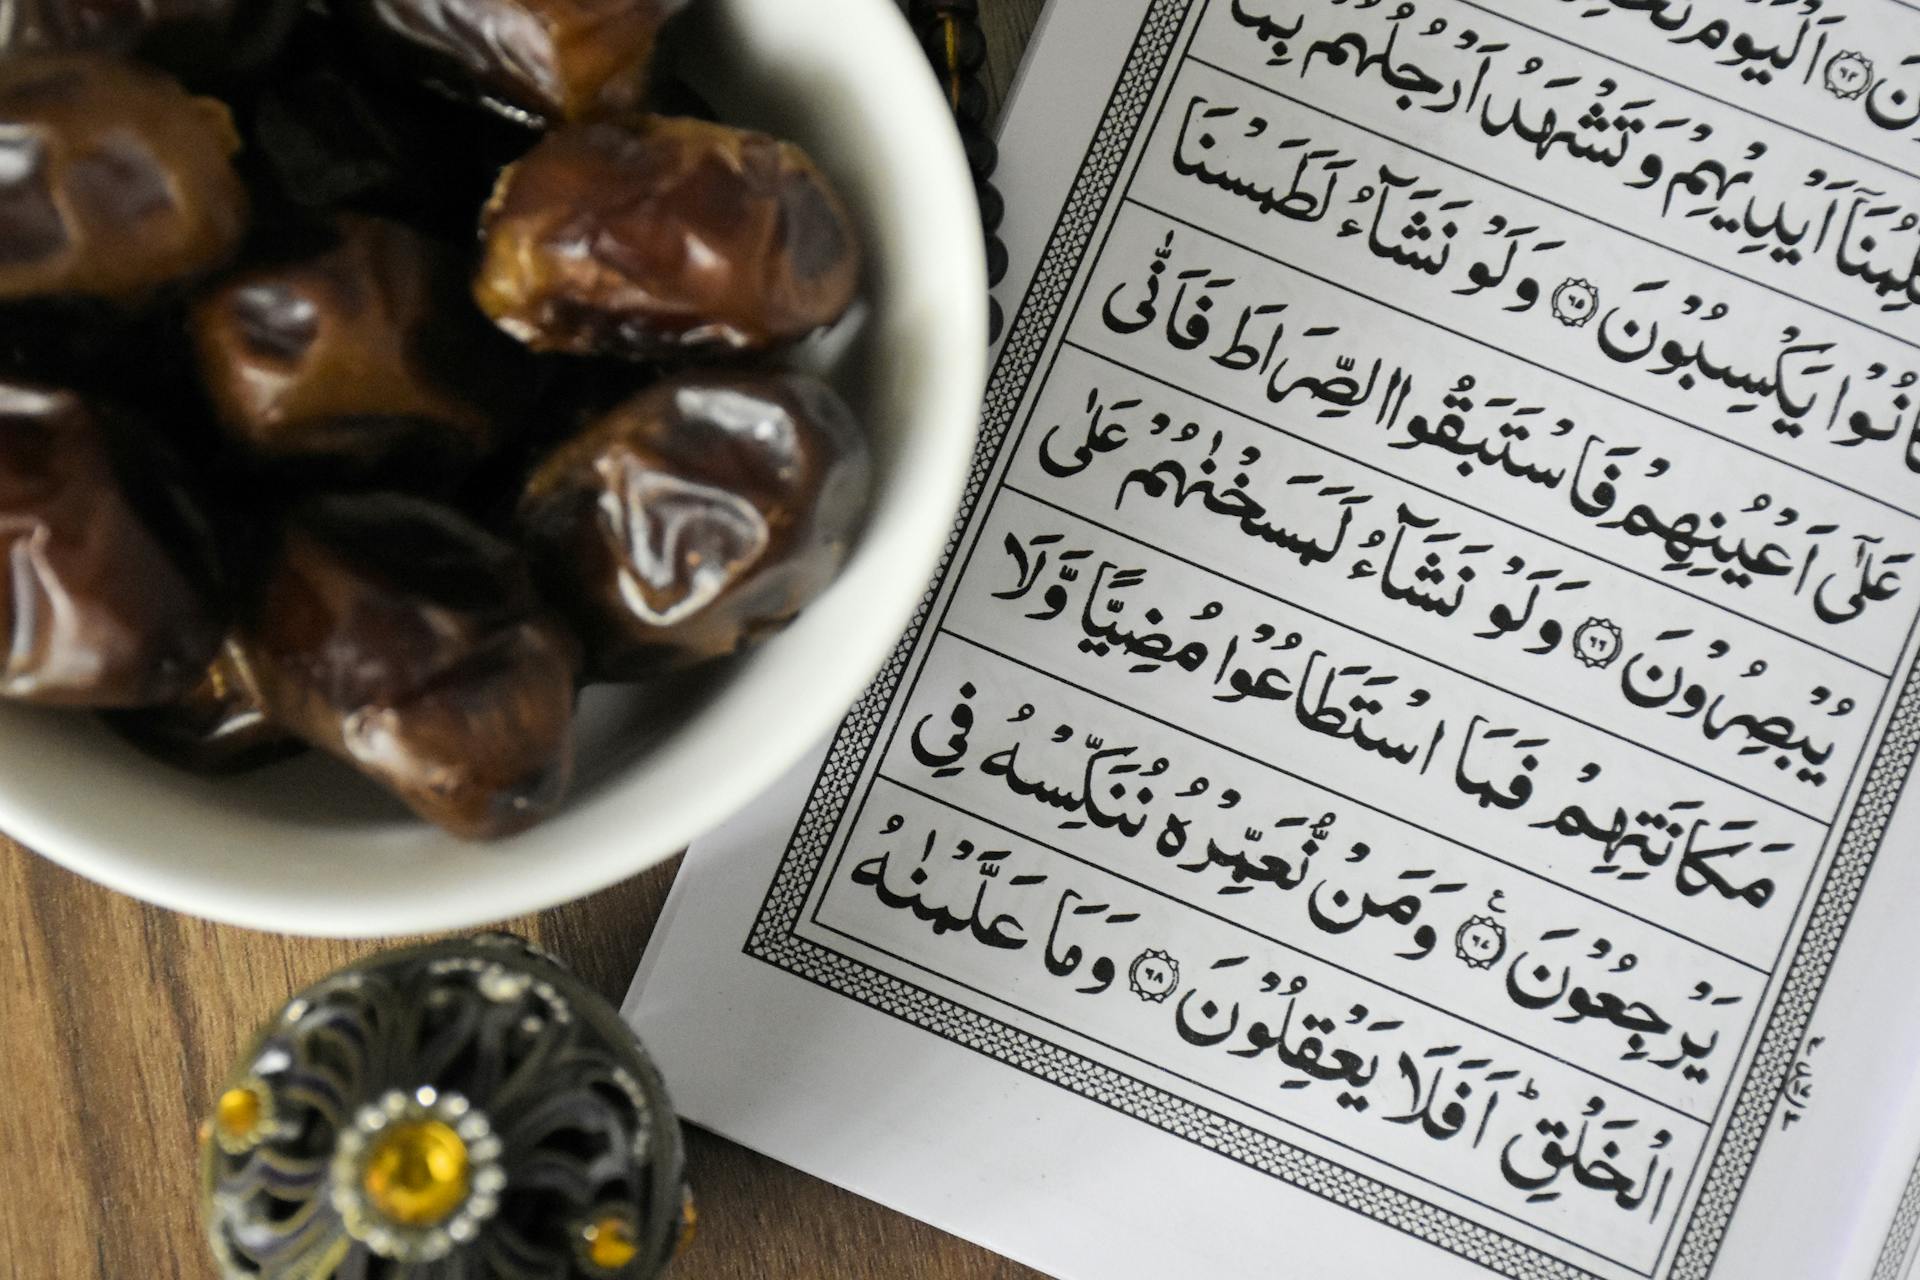 نَ ﴿٦٣﴾ اَلْيَوْمَ
اَيْدِيْهِمْ وَتَشْهَدُ اَرْجُلُهُمْ بِمَا
كَانُوْا يَكْسِبُوْنَ ﴿٦٥﴾ وَلَوْ نَشَآءُ لَطَمَسْنَا
عَلٰٓى اَعْيُنِهِمْ فَاسْتَبَقُوا الصِّرَاطَ فَاَنّٰى
يُبْصِرُوْنَ ﴿٦٦﴾ وَلَوْ نَشَآءُ لَمَسَخْنٰهُمْ عَلٰى
مَكَانَتِهِمْ فَمَا اسْتَطَاعُوْا مُضِيًّا وَّلَا
يَرْجِعُوْنَ ﴿٦٧﴾ وَمَنْ نُّعَمِّرْهُ نُنَكِّسْهُ فِى
الْخَلْقِؕ اَفَلَا يَعْقِلُوْنَ ﴿٦٨﴾ وَمَا عَلَّمْنٰهُ